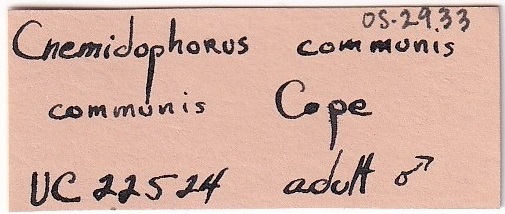 OS.29.33
Cnemidophorus communis
communis Cope
UC 22524 adult ♂